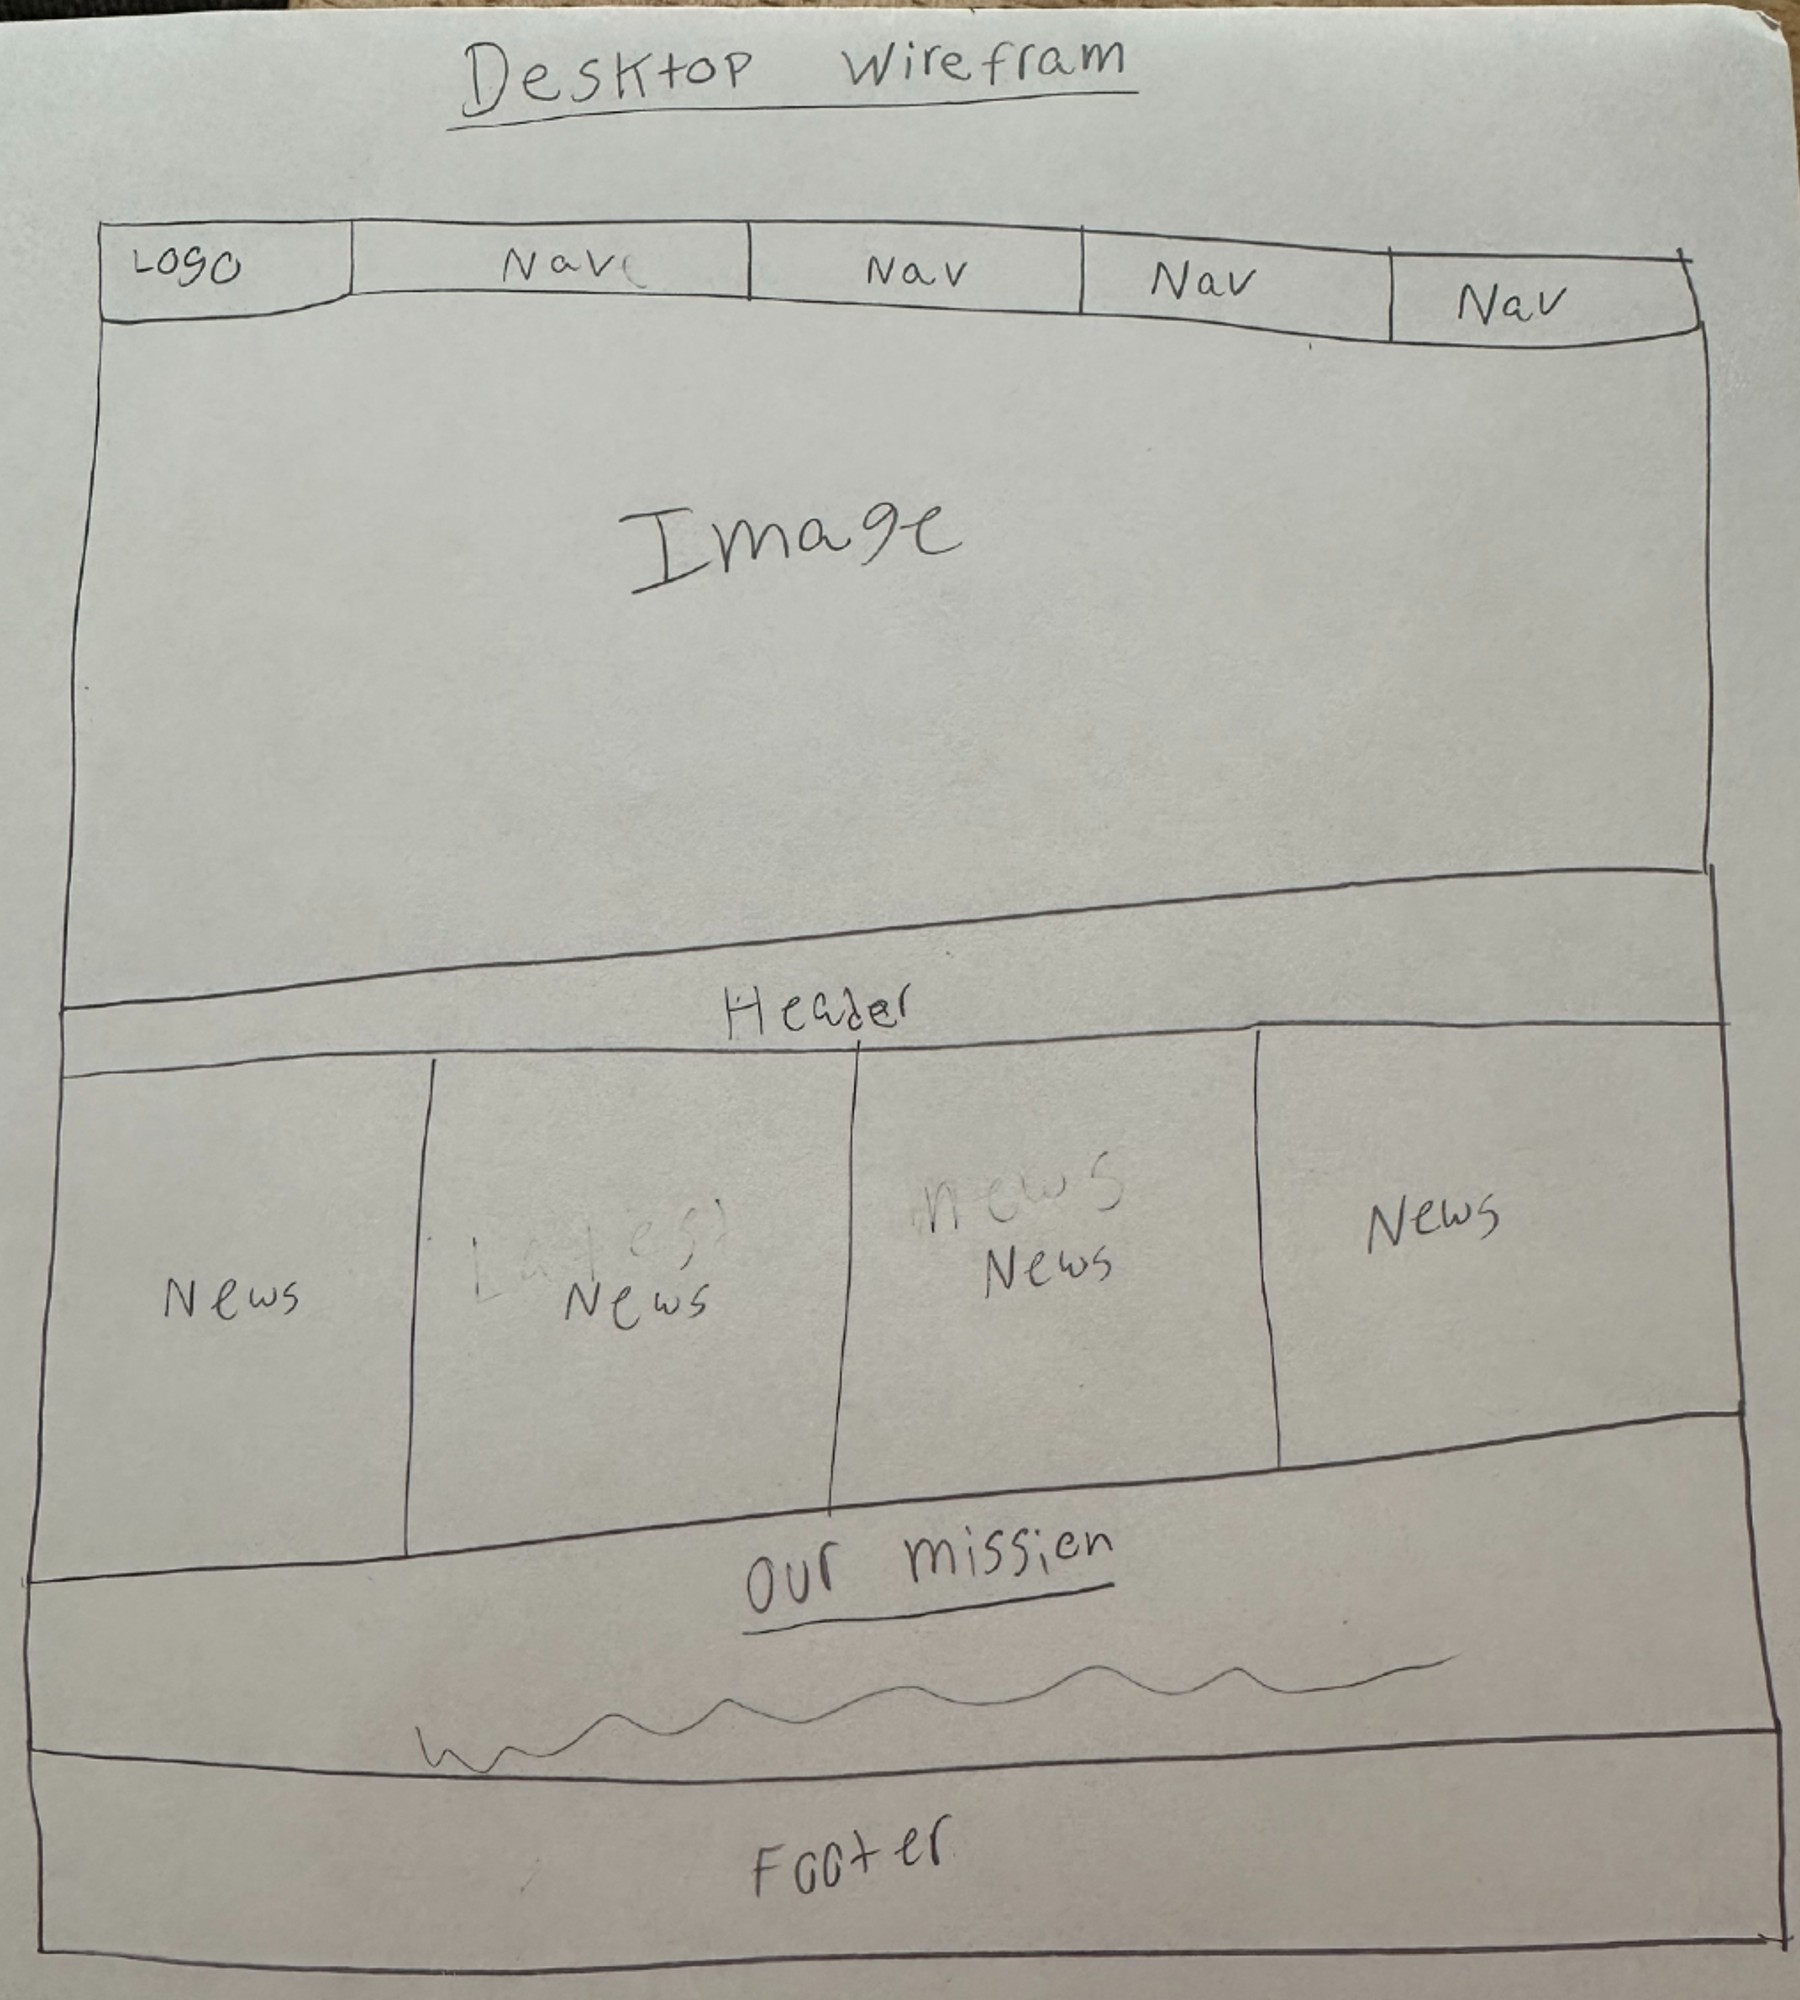 Desktop Wirefram
Logo Nav Nav Nav Nav
Image
Header
Latest news
News News News News
our mission
Footer